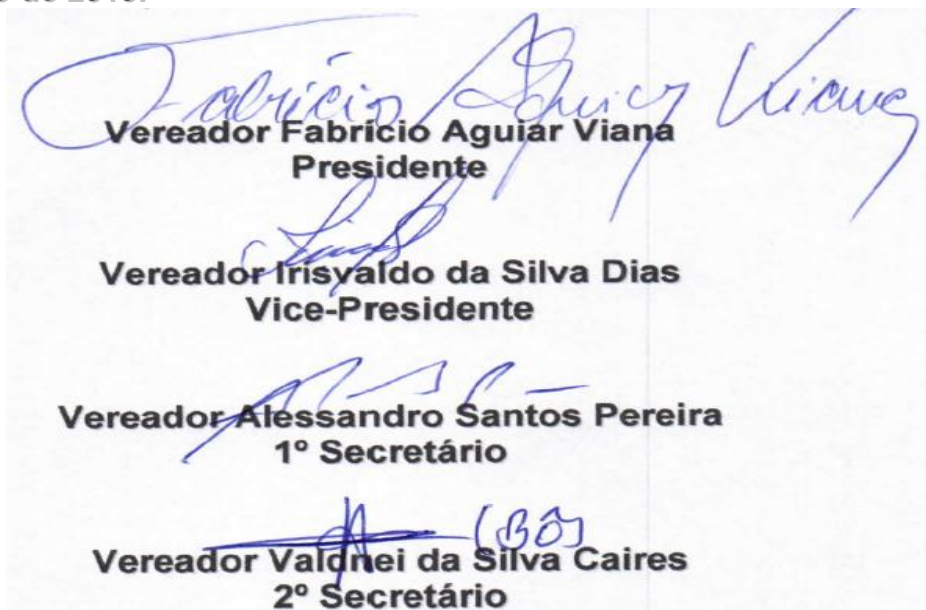 de 2018.
Fabrício Aguiar Viana
Vereador Fabrício Aguiar Viana
Presidente
Vereador Irisvaldo da Silva Dias
Vice-Presidente
Vereador Alessandro Santos Pereira
1º Secretário
(BÔ)
Vereador Valdnei da Silva Caires
2º Secretário